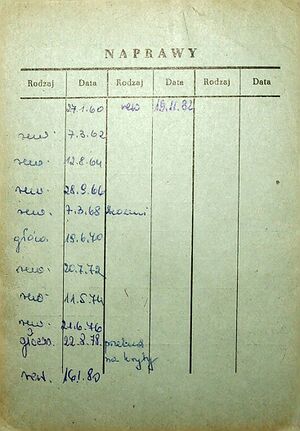 NAPRAWY
Rodzaj Data Rodzaj Data Rodzaj Data
27.1.60 rew 19.11.82
rew. 7.3.62
rew. 12.8.64
rew. 28.9.66
rew. 7.3.68
główn. 19.6.70
rew. 20.7.72
rew. 11.5.74
rew. 21.6.76
główn. 22.8.78.
na
rew. 16.1.80